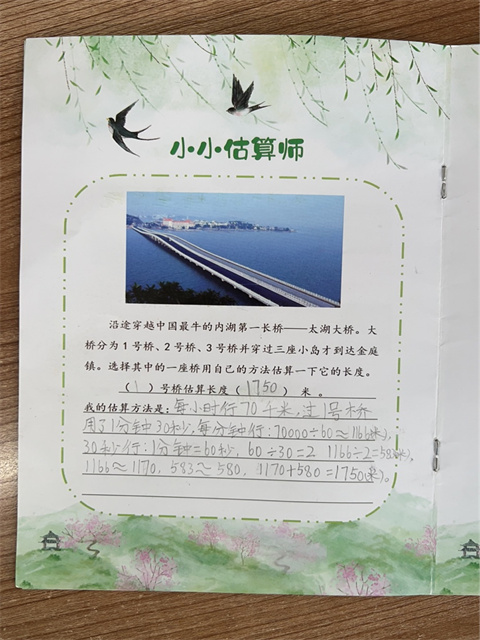 小小估算师
沿途穿越中国最牛的内湖第一长桥——太湖大桥。大
桥分为1号桥、2号桥、3号桥并穿过三座小岛才到达金庭
镇。选择其中的一座桥用自己的方法估算一下它的长度。
（1）号桥估算长度（1750）米。
我的估算方法是：每小时行70千米，过1号桥
用了1分钟30秒，每分钟行：70000÷60≈1166(米)，
30秒行：1分钟=60秒，60÷30=2 1166÷2=583(米)，
1166≈1170，583≈580，1170+580=1750(米)。